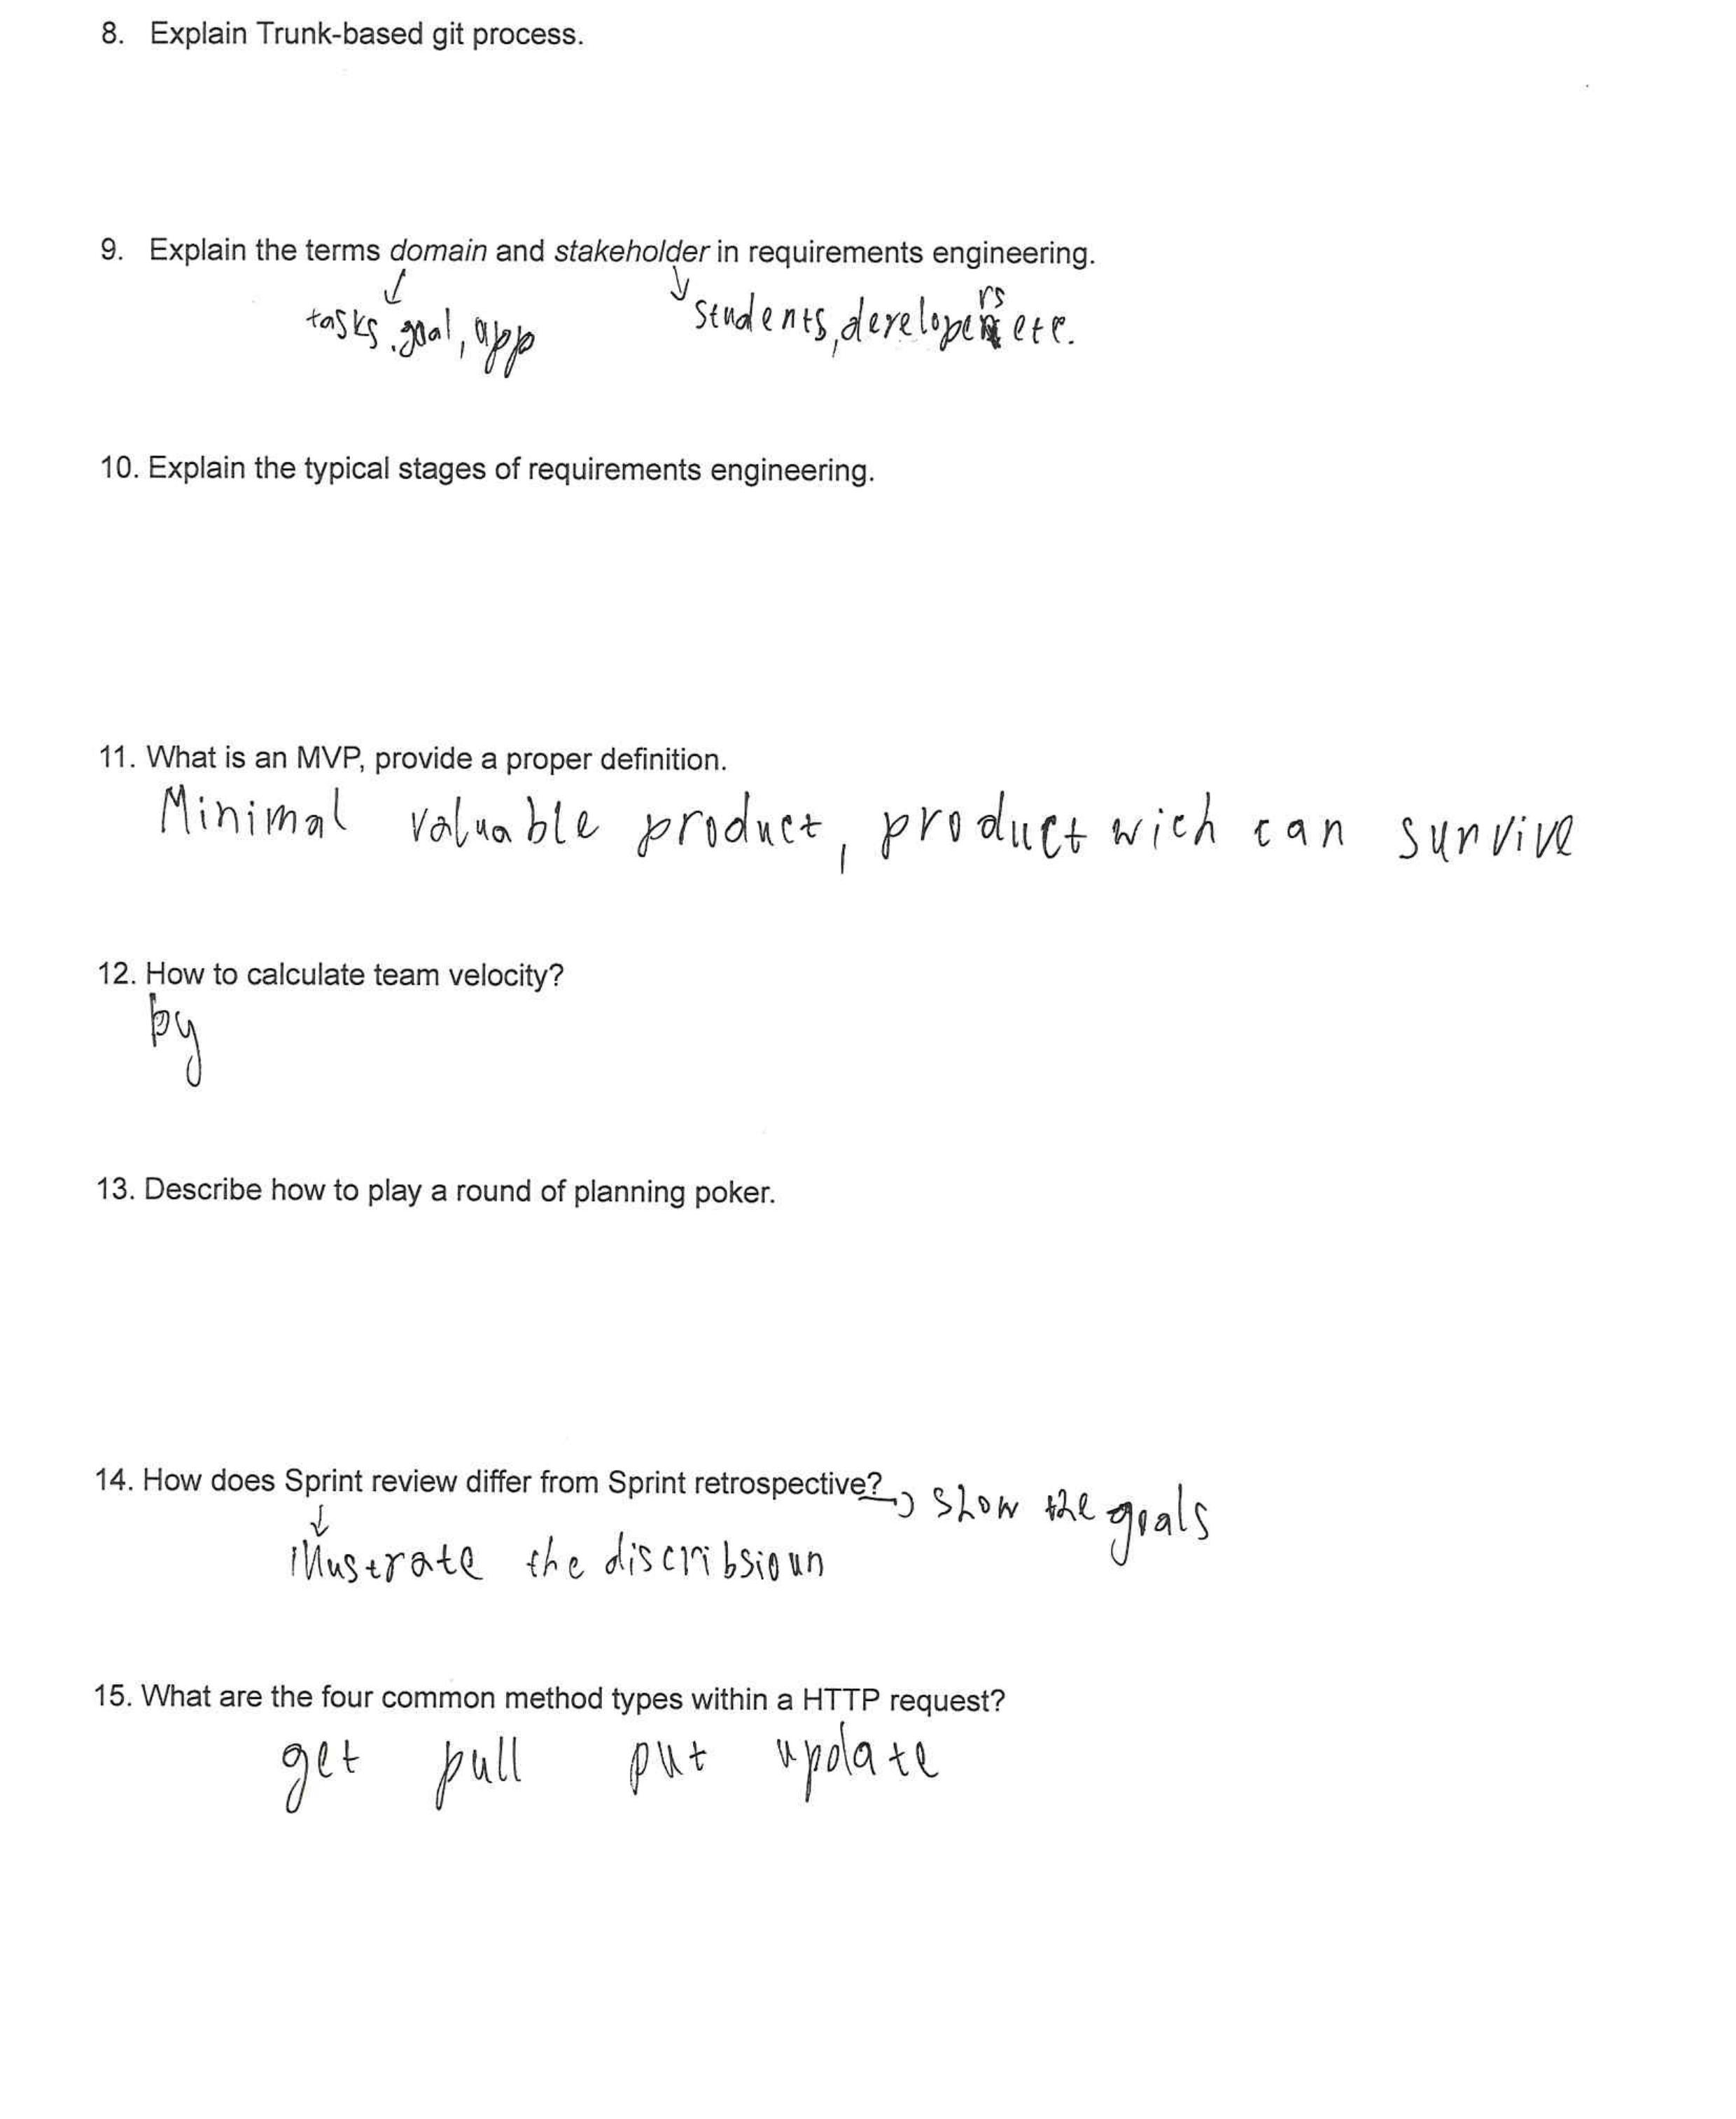 8. Explain Trunk-based git process.
9. Explain the terms domain and stakeholder in requirements engineering.
tasks, goal, app
students, developers etc.
10. Explain the typical stages of requirements engineering.
11. What is an MVP, provide a proper definition.
Minimal valuable product, product wich can survive
12. How to calculate team velocity?
by
13. Describe how to play a round of planning poker.
14. How does Sprint review differ from Sprint retrospective? → show the goals
illustrate the discribsioun
15. What are the four common method types within a HTTP request?
get pull put update